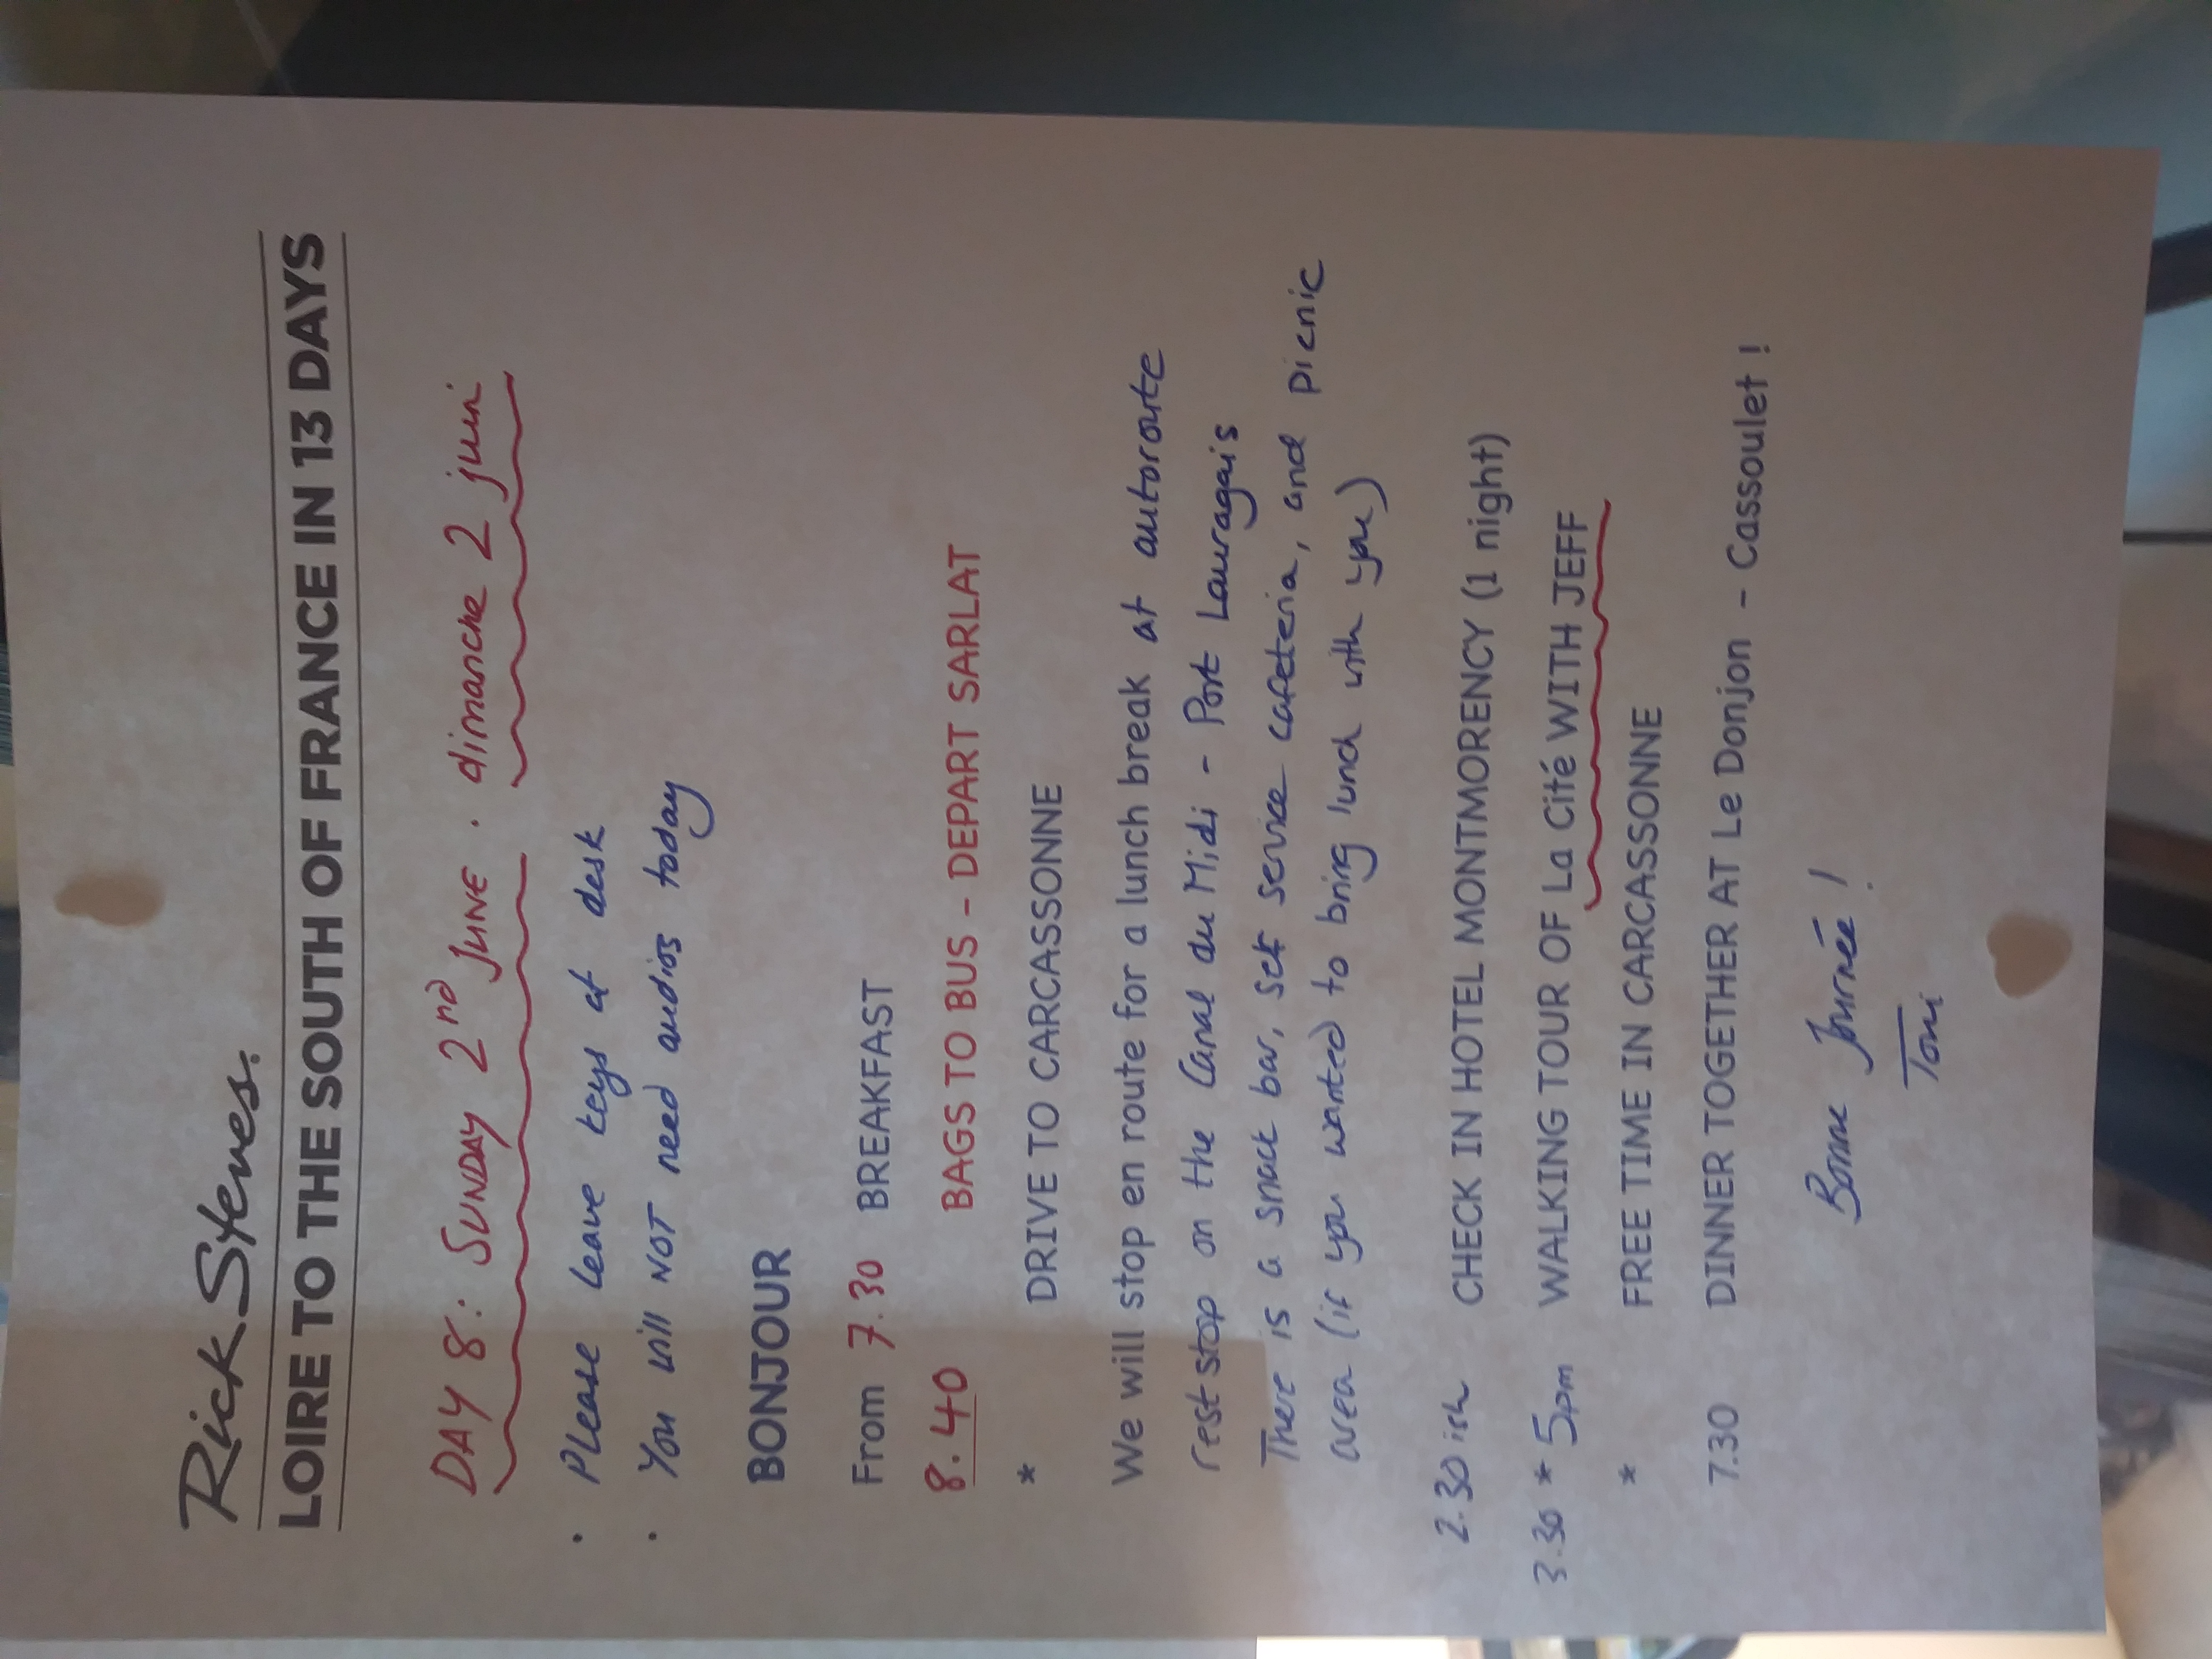 Rick Steves.
LOIRE TO THE SOUTH OF FRANCE IN 13 DAYS
DAY 8: SUNDAY 2nd JUNE . dimanche 2 juin
· Please leave keys at desk
· You will NOT need audios today
BONJOUR
From 7.30 BREAKFAST
8.40 BAGS TO BUS - DEPART SARLAT
* DRIVE TO CARCASSONNE
We will stop en route for a lunch break at autoroute
rest stop on the Canal du Midi - Port Lauragais
There is a snack bar, self service cafeteria, and picnic
area (if you wanted to bring lunch with you)
2.30 ish CHECK IN HOTEL MONTMORENCY (1 night)
3.30 * 5pm WALKING TOUR OF La Cité WITH JEFF
* FREE TIME IN CARCASSONNE
7.30 DINNER TOGETHER AT Le Donjon - Cassoulet!
Bonne Journée!
Toni